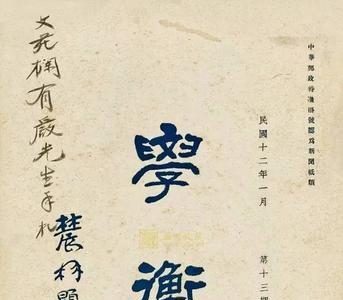 中華郵政特准掛號認爲新聞紙類
民國十二年一月
第十三期
學衡
文苑欄有嚴先生手札